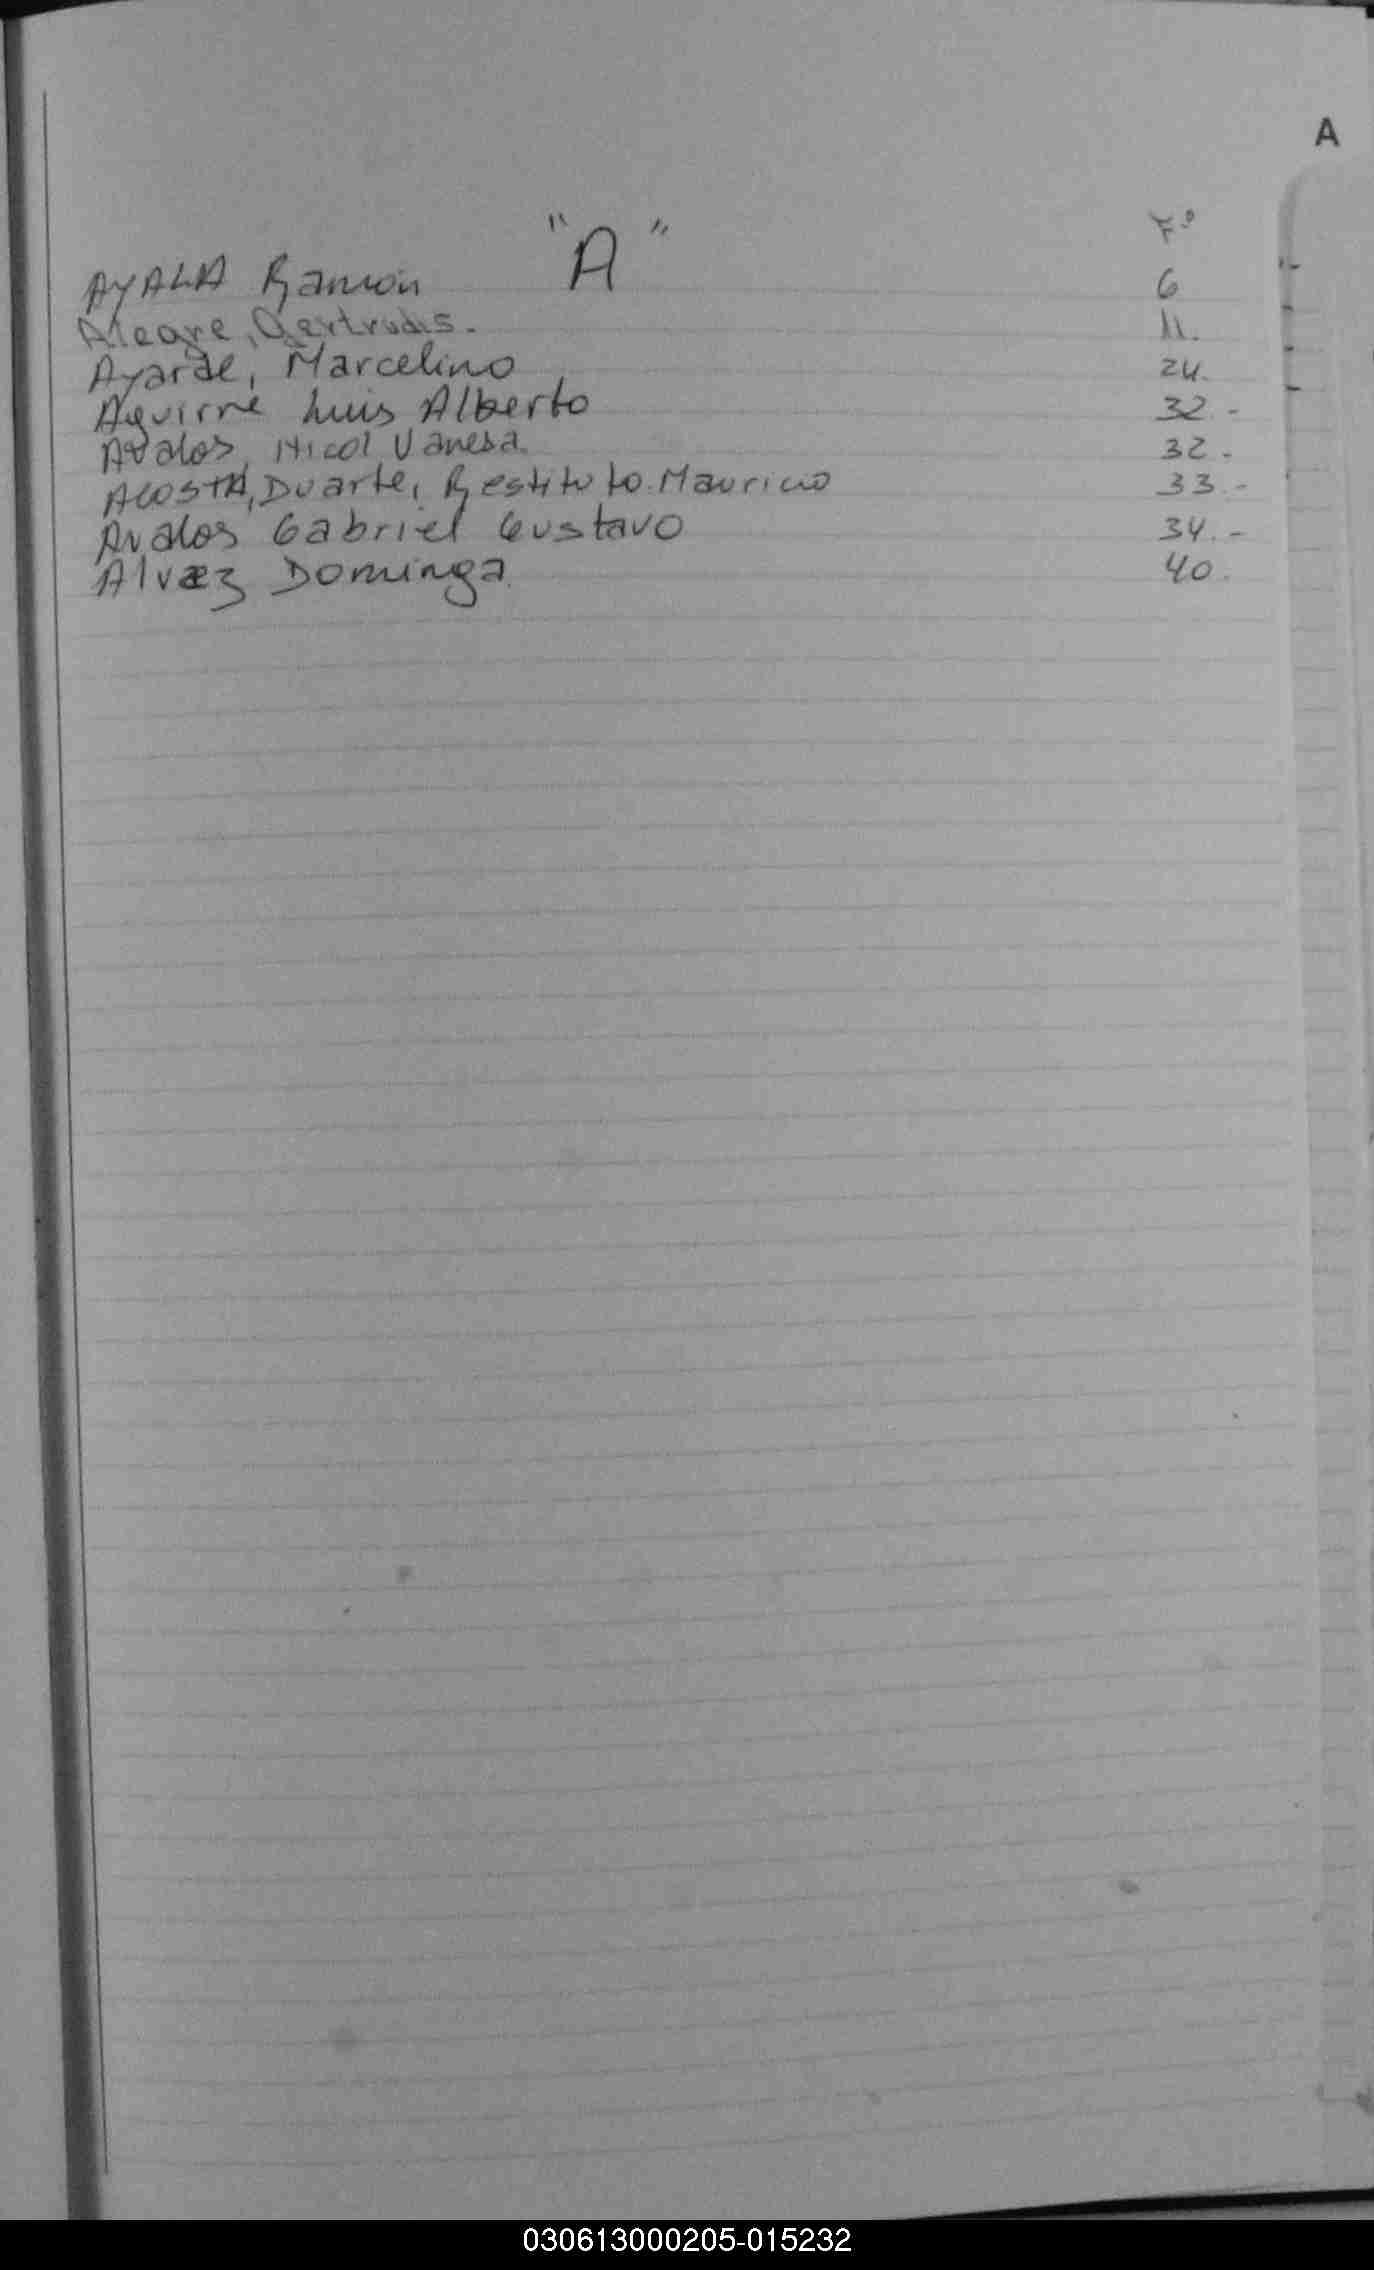 A
"A" Fº
AYALA Ramón 6
Alegre, Gertrudis. 11.
Ayarde, Marcelino 24.
Aguirre Luis Alberto 32.-
Avalos, Nicol Vanesa. 32.-
ACOSTA, Duarte, Restituto Mauricio 33.-
Avalos Gabriel Gustavo 34.-
Alvez Dominga. 40.
030613000205-015232